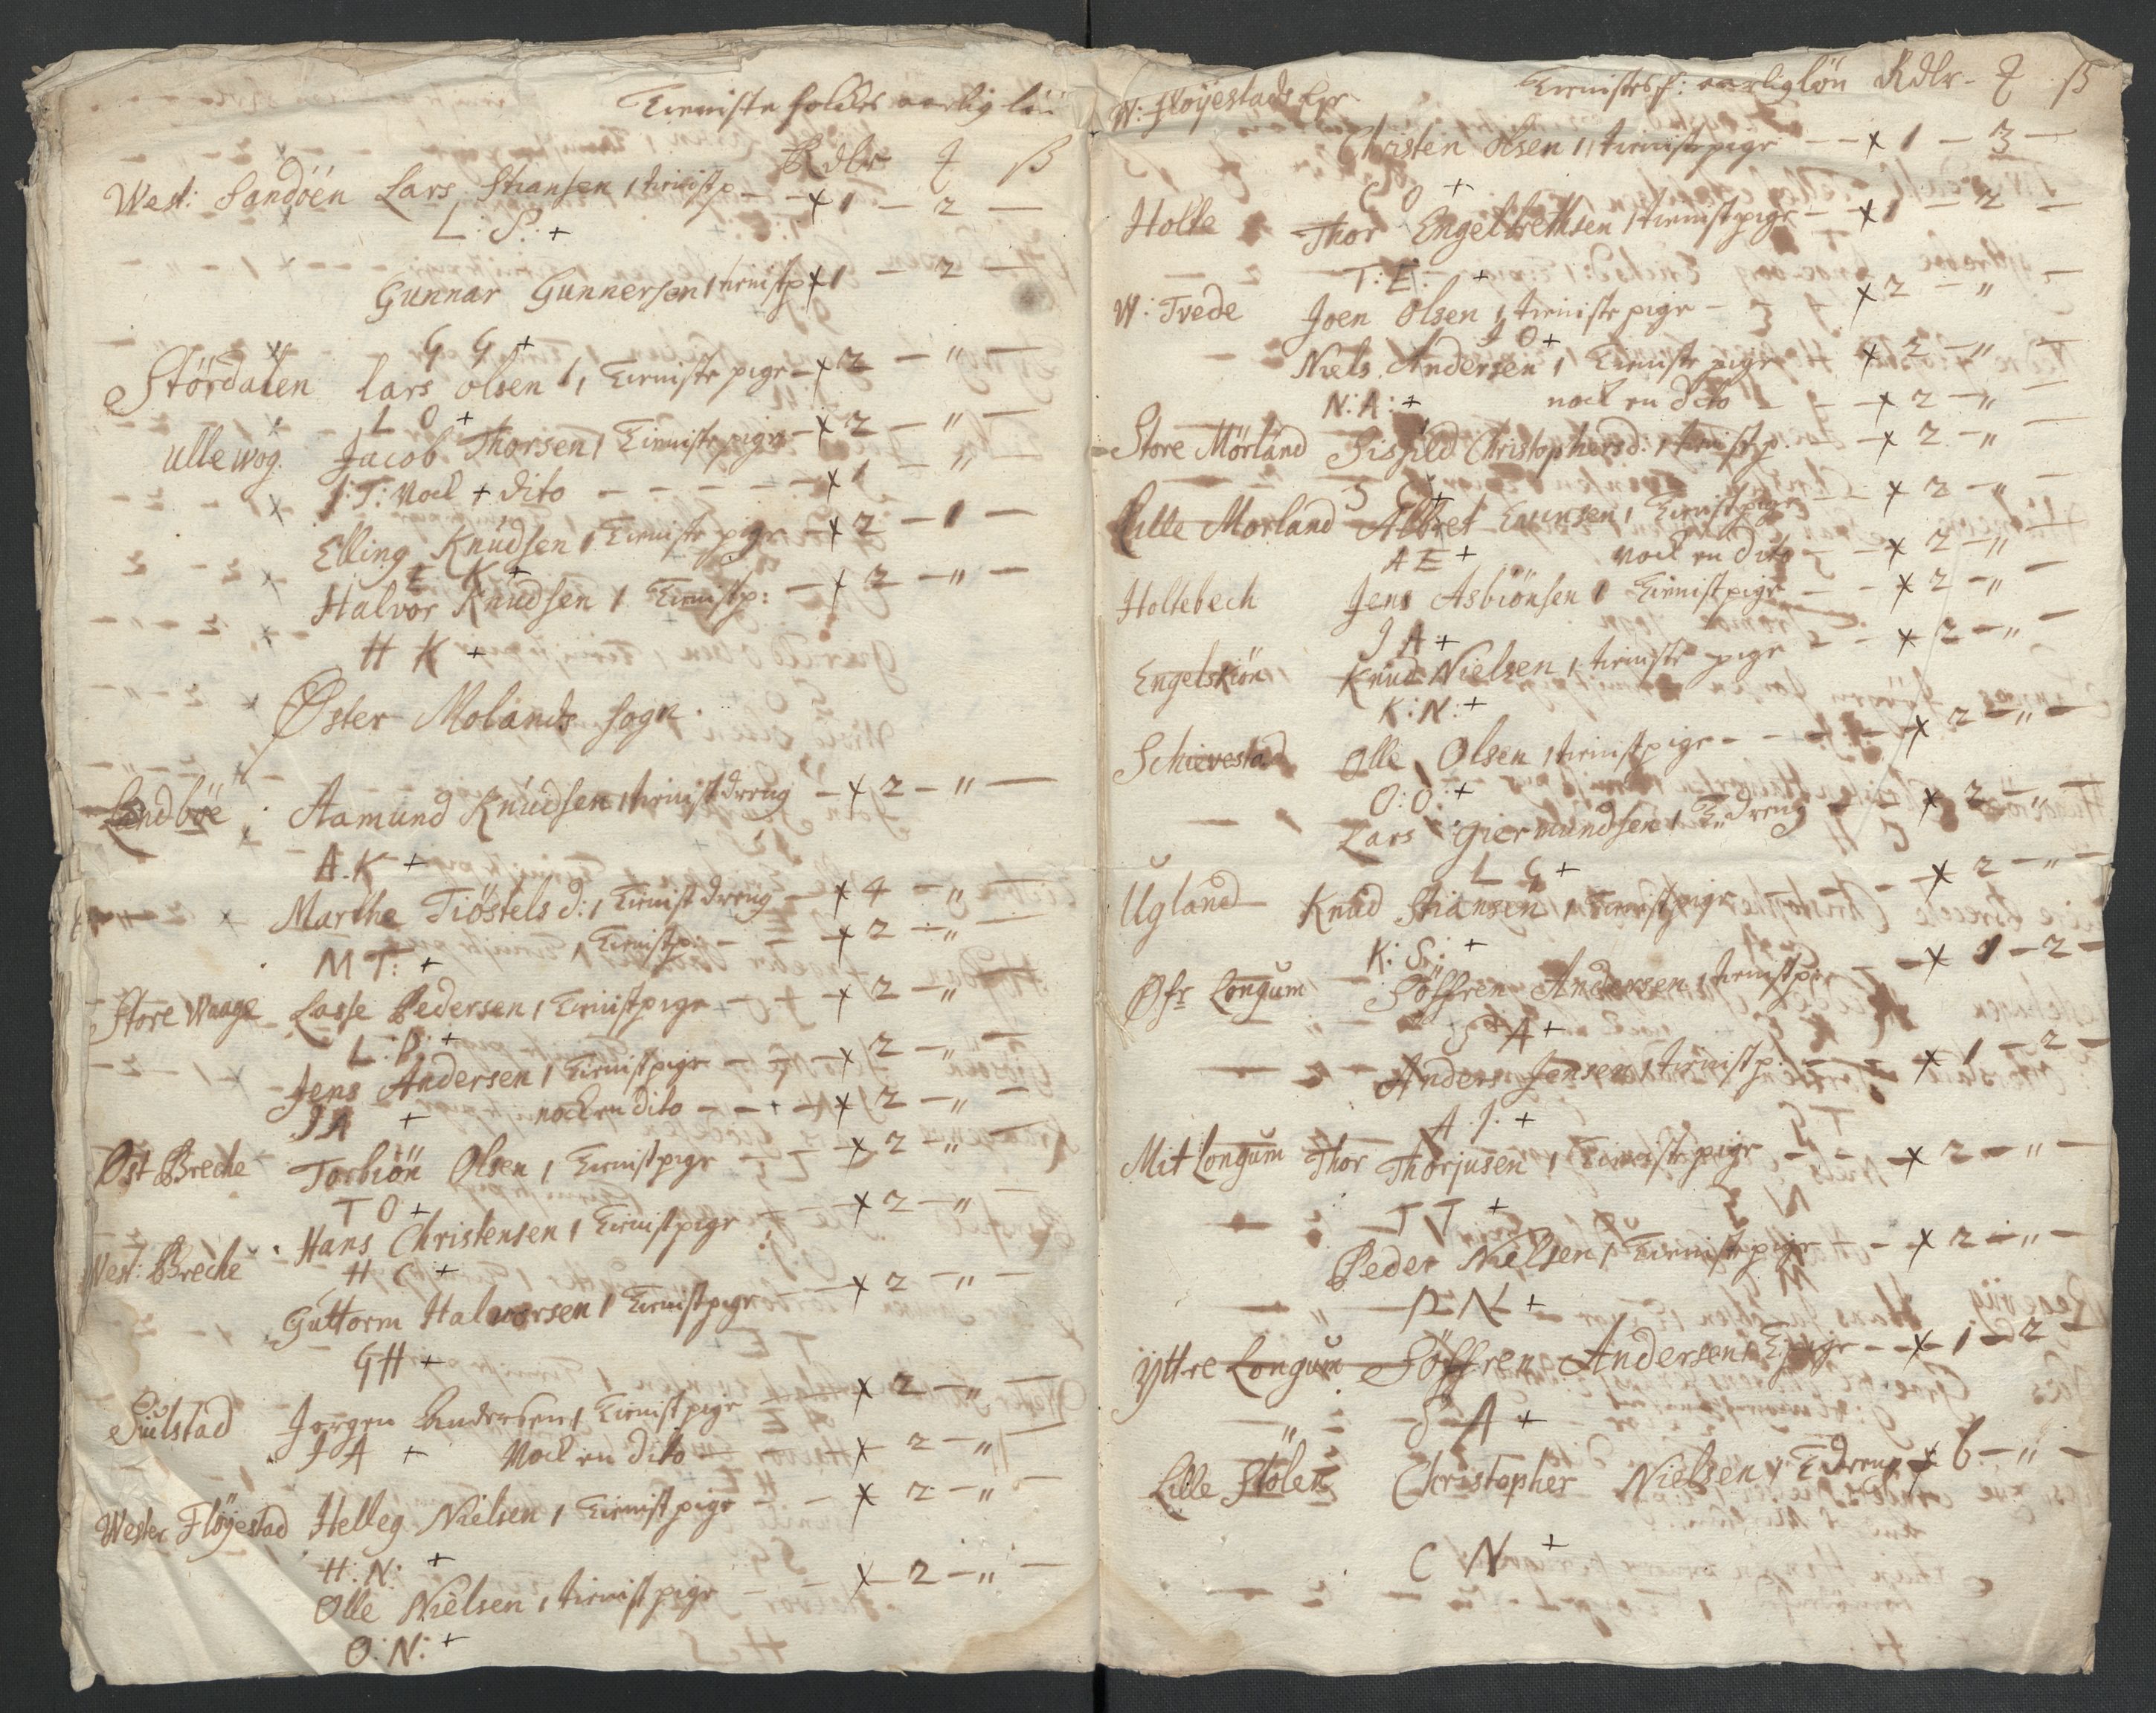 Tieniste folckes aarlig løn
Rdlr ß
West: Sandöen Lars Stiansen 1 tienistp – x 1 – 2 –
L: S: +
Gunnar Gunnersen 1 tienistp x 1 – 2 –
G G +
Stördalen Lars Olsen 1 Tieniste pige – x 2 – " –
L O +
Ullewog Jacob Thorsen 1 Tieniste pige – x 2 – " –
I: T: Nock + dito – – – – – x 1 – " –
Elling Knudsen 1 Tieniste pige – x 2 – 1 –
E K +
Halvor Knudsen 1 Tienistp: – x 2 – " –
H K +
Øster Molands Sogn
Landbøe Aamund Knudsen 1 tienist dreng – x 2 – " –
A. K +
Marthe Tiöstels d: 1 Tienist dreng – x 4 – " –
M T: + 1 Tienistp: – – x 2 – " –
Store Waage Lasse Pedersen 1 Tienistpige – – x 2 – " –
L. P: +
Jens Andersen 1 Tienistpige – – x 2 – " –
J A + nock en dito – – – x 2 – " –
Øst Breche Torbiön Olsen 1 Tienistpige – – x 2 – " –
T O +
Hans Christensen 1 Tienistpige – – x 2 – " –
West: Breche H C +
Guttorm Halworsen 1 Tienistpige – – x 2 – " –
G H +
Sulstad Jorgen Andersen 1 Tienistpige – x 2 – " –
J A + Nock en dito – – x 2 – " –
Wester Fløyestad Helleg Nielsen 1 Tienistpige – – x 2 – " –
H: N: +
Olle Nielsen 1 tienistpige – – x 2 – " –
O: N: +
W: Fløyestads Tienistes f: aarlig løn Rdlr – ß
Christen Olsen 1 tienistpige – – x 1 – 3 –
C O +
Holte Thor Engelbrethsen 1 tienistpige – x 1 – 2 –
T: E: +
W: Tvede Joen Olsen 1 tieniste pige – x 2 – " –
J O +
Niels Andersen 1 Tieniste pige x 2 – " –
N: A: + nock en dito – – x 2 – "
Store Mörland Sissild Christophersd: 1 tienistp. – x 2 – "
S C +
Lille Morland Albret Evensen 1 Tienistpige – x 2 – " –
A E + Nock en dito – x 2 – "
Holtebech Jens Asbiönsen 1 Tienistpige – – x 2 – " –
J A +
Engelskiön Knud Nielsen 1 tieniste pige – – x 2 – " –
K: N: +
Schievestad Olle Olsen 1 tienistpige – – – x 2 – " –
O: O: +
Lars Giermundsen 1 T: dreng – – x 2 – " –
L G +
Ugland Knud Stiansen 1 Tienistpige – x 2 – " –
K: S: +
Øfr Longum Söffren Andersen 1 tienistpige – x 1 – 2 –
S A +
Anders Jensen 1 tienistp: – – x 1 – 2 –
A. J. +
Mit Longum Thor Thorjusen 1 Tienistepige – – x 2 – " –
T T +
Peder Nielsen 1 Tienistpige – x 2 – " –
P N +
Yttre Longum Söffren Andersen 1 T: pige – – x 1 – 2 –
S A +
Lille Stølen Christopher Nielsen 1 T dreng x 6 – " –
C N +